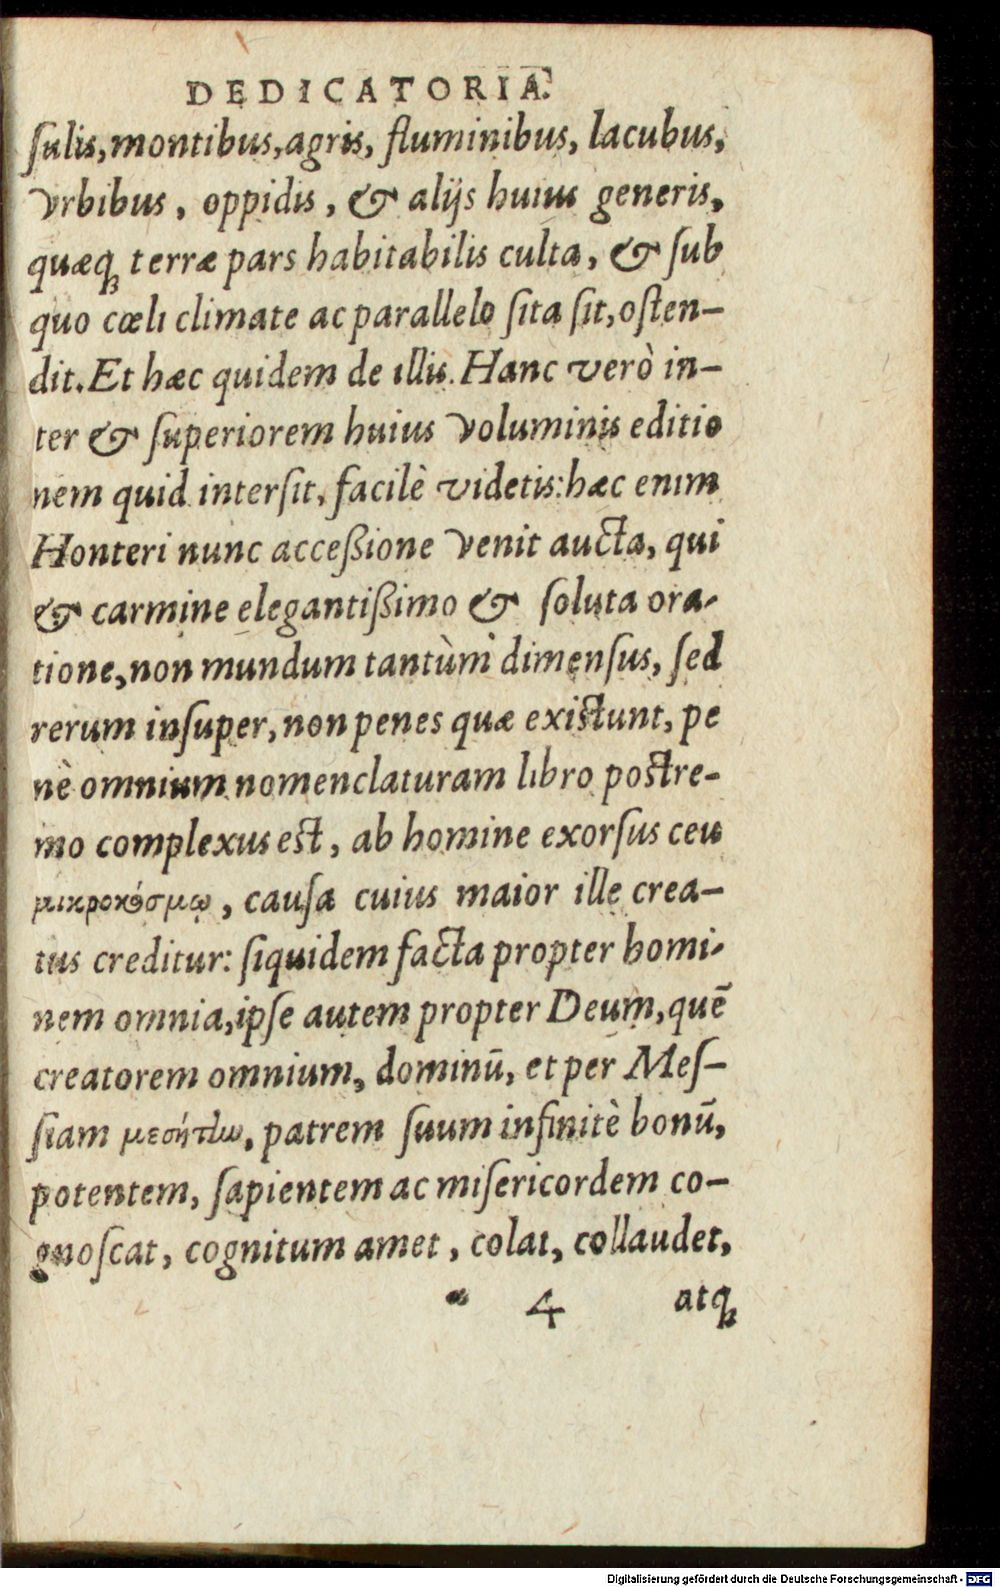 DEDICATORIA.
ſulis, montibus, agris, fluminibus, lacubus,
vrbibus, oppidis, & alijs huius generis,
quæq; terræ pars habitabilis culta, & ſub
quo cœli climate ac parallelo ſita ſit, oſten-
dit. Et hæc quidem de illis. Hanc verò in-
ter & ſuperiorem huius voluminis editio
nem quid interſit, facilè videtis: hæc enim
Honteri nunc acceßione venit aucta, qui
& carmine elegantißimo & ſoluta ora-
tione, non mundum tantùm dimenſus, ſed
rerum inſuper, non penes quæ exiſtunt, pe
nè omnium nomenclaturam libro poſtre-
mo complexus eſt, ab homine exorſus ceu
μικροκόσμῳ, cauſa cuius maior ille crea-
tus creditur: ſiquidem facta propter homi-
nem omnia, ipſe autem propter Deum, quẽ
creatorem omnium, dominũ, et per Meſ-
ſiam μεσήτlω, patrem ſuum infinitè bonũ,
potentem, ſapientem ac miſericordem co-
gnoſcat, cognitum amet, colat, collaudet,
* 4 atq;
Digitalisierung gefördert durch die Deutsche Forschungsgemeinschaft - DFG